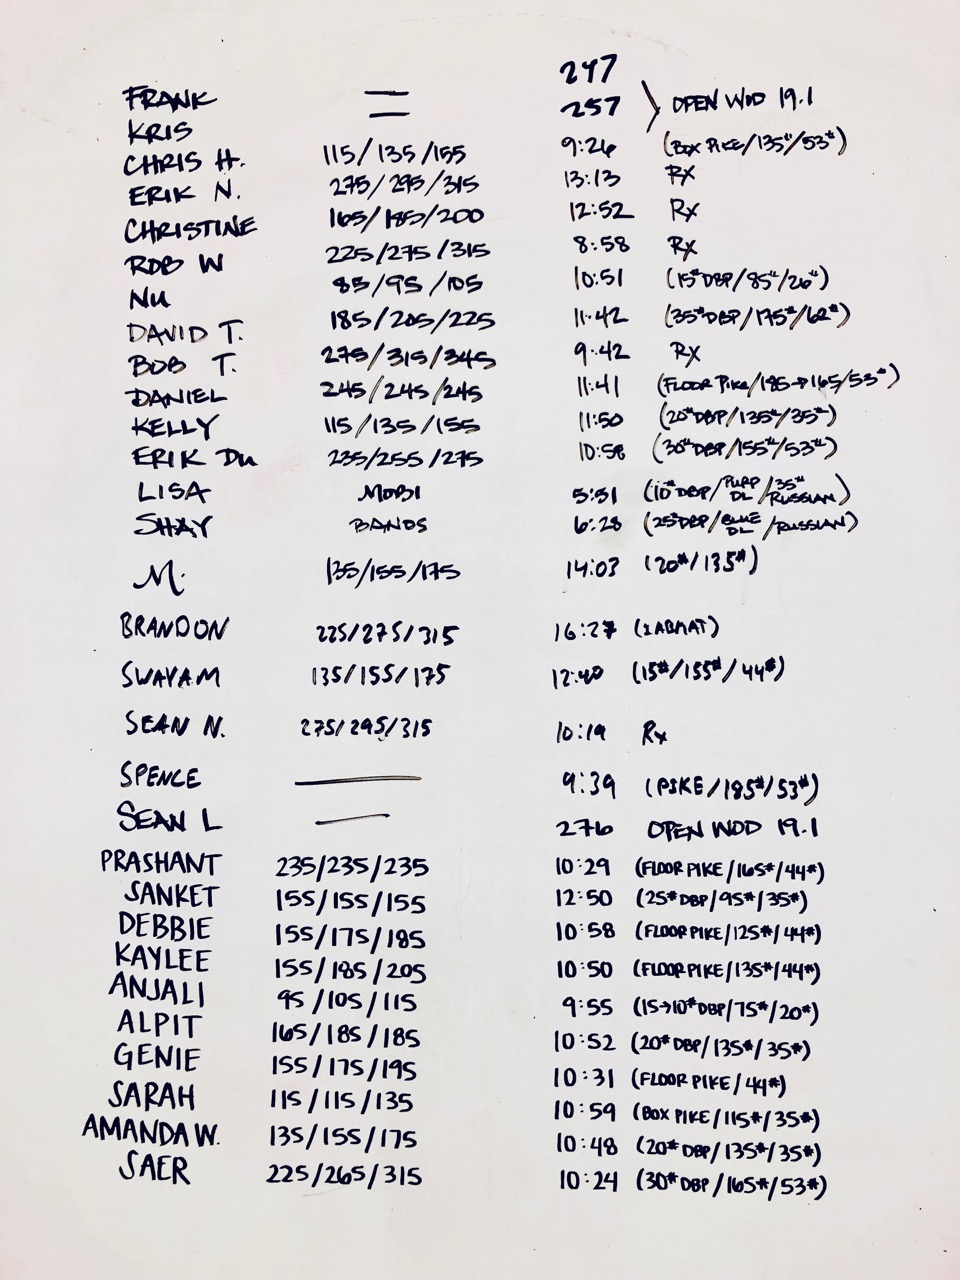 FRANK — 247
KRIS — 257 } OPEN WOD 19.1
CHRIS H. 115/135/155 9:26 (BOX PIKE/135#/53#)
ERIK N. 275/295/315 13:13 RX
CHRISTINE 165/185/200 12:52 Rx
ROB W 225/275/315 8:58 Rx
NU 85/95/105 10:51 (15#DBP/85#/26#)
DAVID T. 185/205/225 11:42 (35#DBP/175#/62#)
BOB T. 275/315/345 9:42 RX
DANIEL 245/245/245 11:41 (FLOOR PIKE/185→165/53#)
KELLY 115/135/155 11:50 (20#DBP/135#/35#)
ERIK DU 235/255/275 10:58 (30#DBP/155#/53#)
LISA MOBI 5:51 (10#DBP/PURP DL/35# RUSSIAN)
SHAY BANDS 6:28 (25#DBP/BLUE DL/RUSSIAN)
M. 135/155/175 14:03 (20#/135#)
BRANDON 225/275/315 16:27 (1ABMAT)
SWAYAM 135/155/175 12:40 (15#/155#/44#)
SEAN N. 275/295/315 10:19 Rx
SPENCE — 9:39 (PIKE/185#/53#)
SEAN L — 276 OPEN WOD 19.1
PRASHANT 235/235/235 10:29 (FLOOR PIKE/165#/44#)
SANKET 155/155/155 12:50 (25#DBP/95#/35#)
DEBBIE 155/175/185 10:58 (FLOOR PIKE/125#/44#)
KAYLEE 155/185/205 10:50 (FLOOR PIKE/135#/44#)
ANJALI 95/105/115 9:55 (15→10#DBP/75#/20#)
ALPIT 165/185/185 10:52 (20#DBP/135#/35#)
GENIE 155/175/195 10:31 (FLOOR PIKE/44#)
SARAH 115/115/135 10:59 (BOX PIKE/115#/35#)
AMANDA W. 135/155/175 10:48 (20#DBP/135#/35#)
SAER 225/265/315 10:24 (30#DBP/165#/53#)